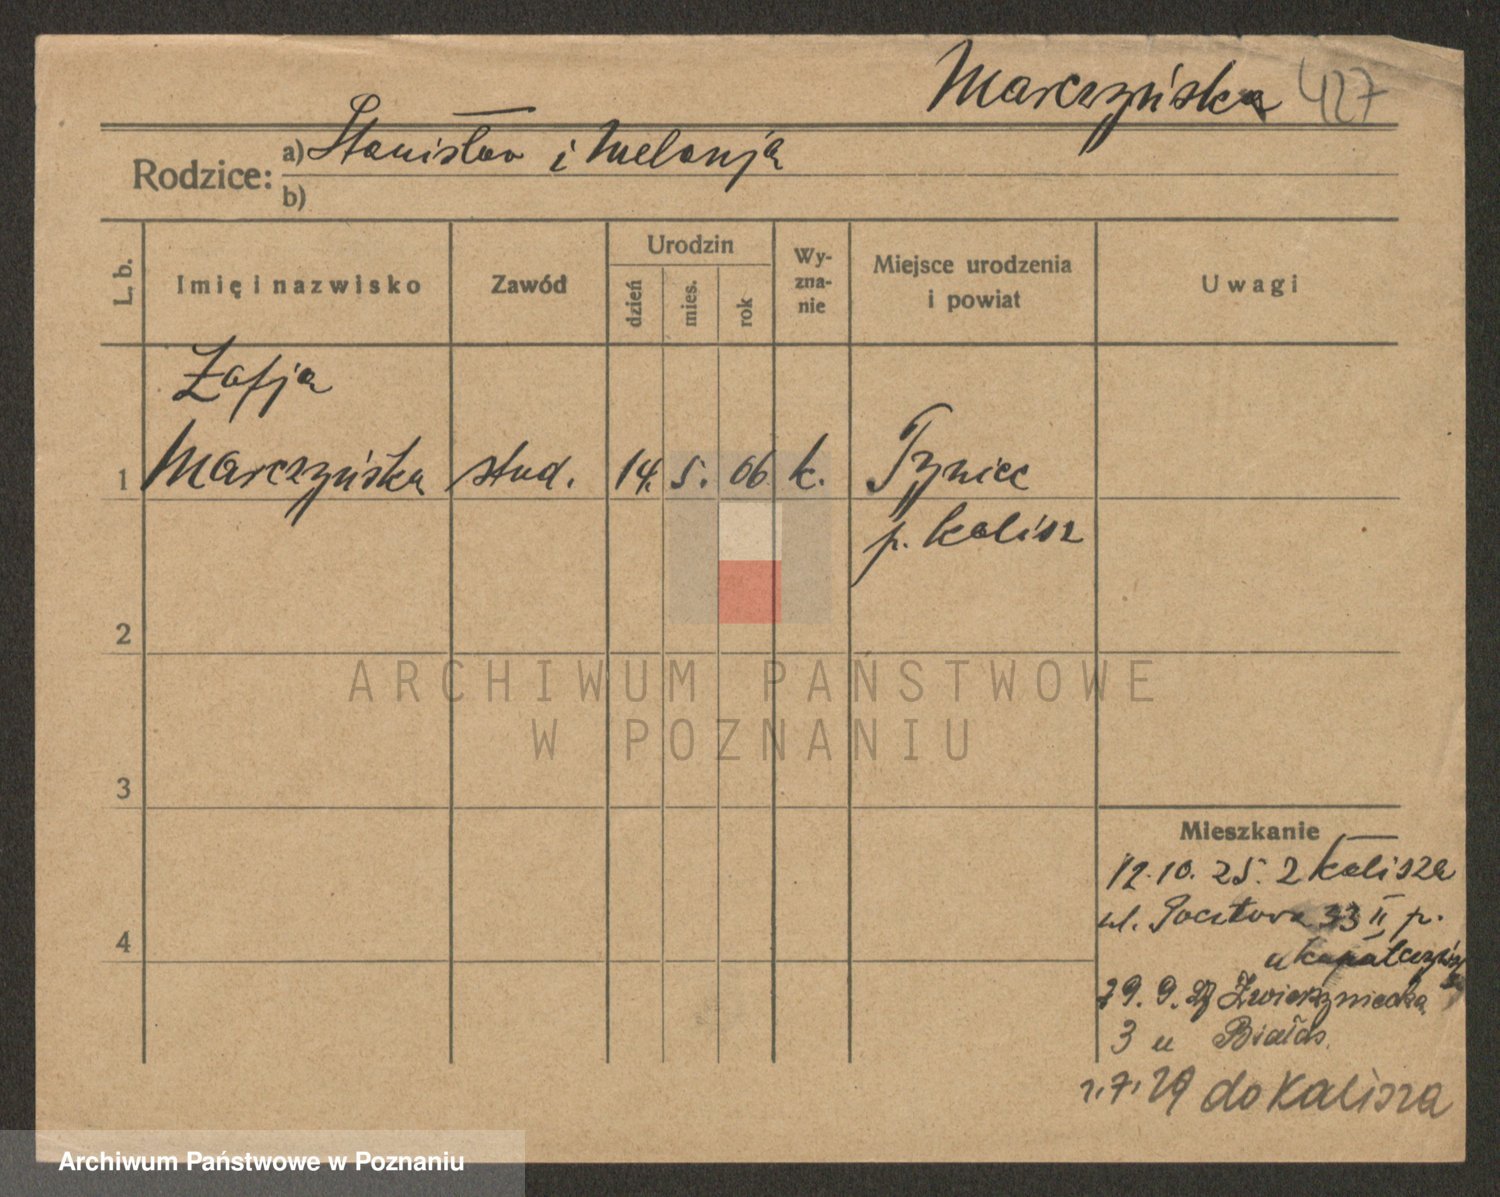 Marczyńska 427
Rodzice:
a) Stanisław i Melanja
b)
L. b.
Imię i nazwisko
Zawód
Urodzin
dzień
mies.
rok
Wy-
zna-
nie
Miejsce urodzenia
i powiat
Uwagi
Zofja
1 Marczyńska stud. 14. 5. 06 k. Tyniec
p. Kalisz
2
ARCHIWUM PAŃSTWOWE
W POZNANIU
3
Mieszkanie
12.10.25. z Kalisza
ul. Pocztowa 33 II p.
u
4
29. 9. Zwierzyniecka
3 u Białas.
1.7.29 do Kalisza
Archiwum Państwowe w Poznaniu